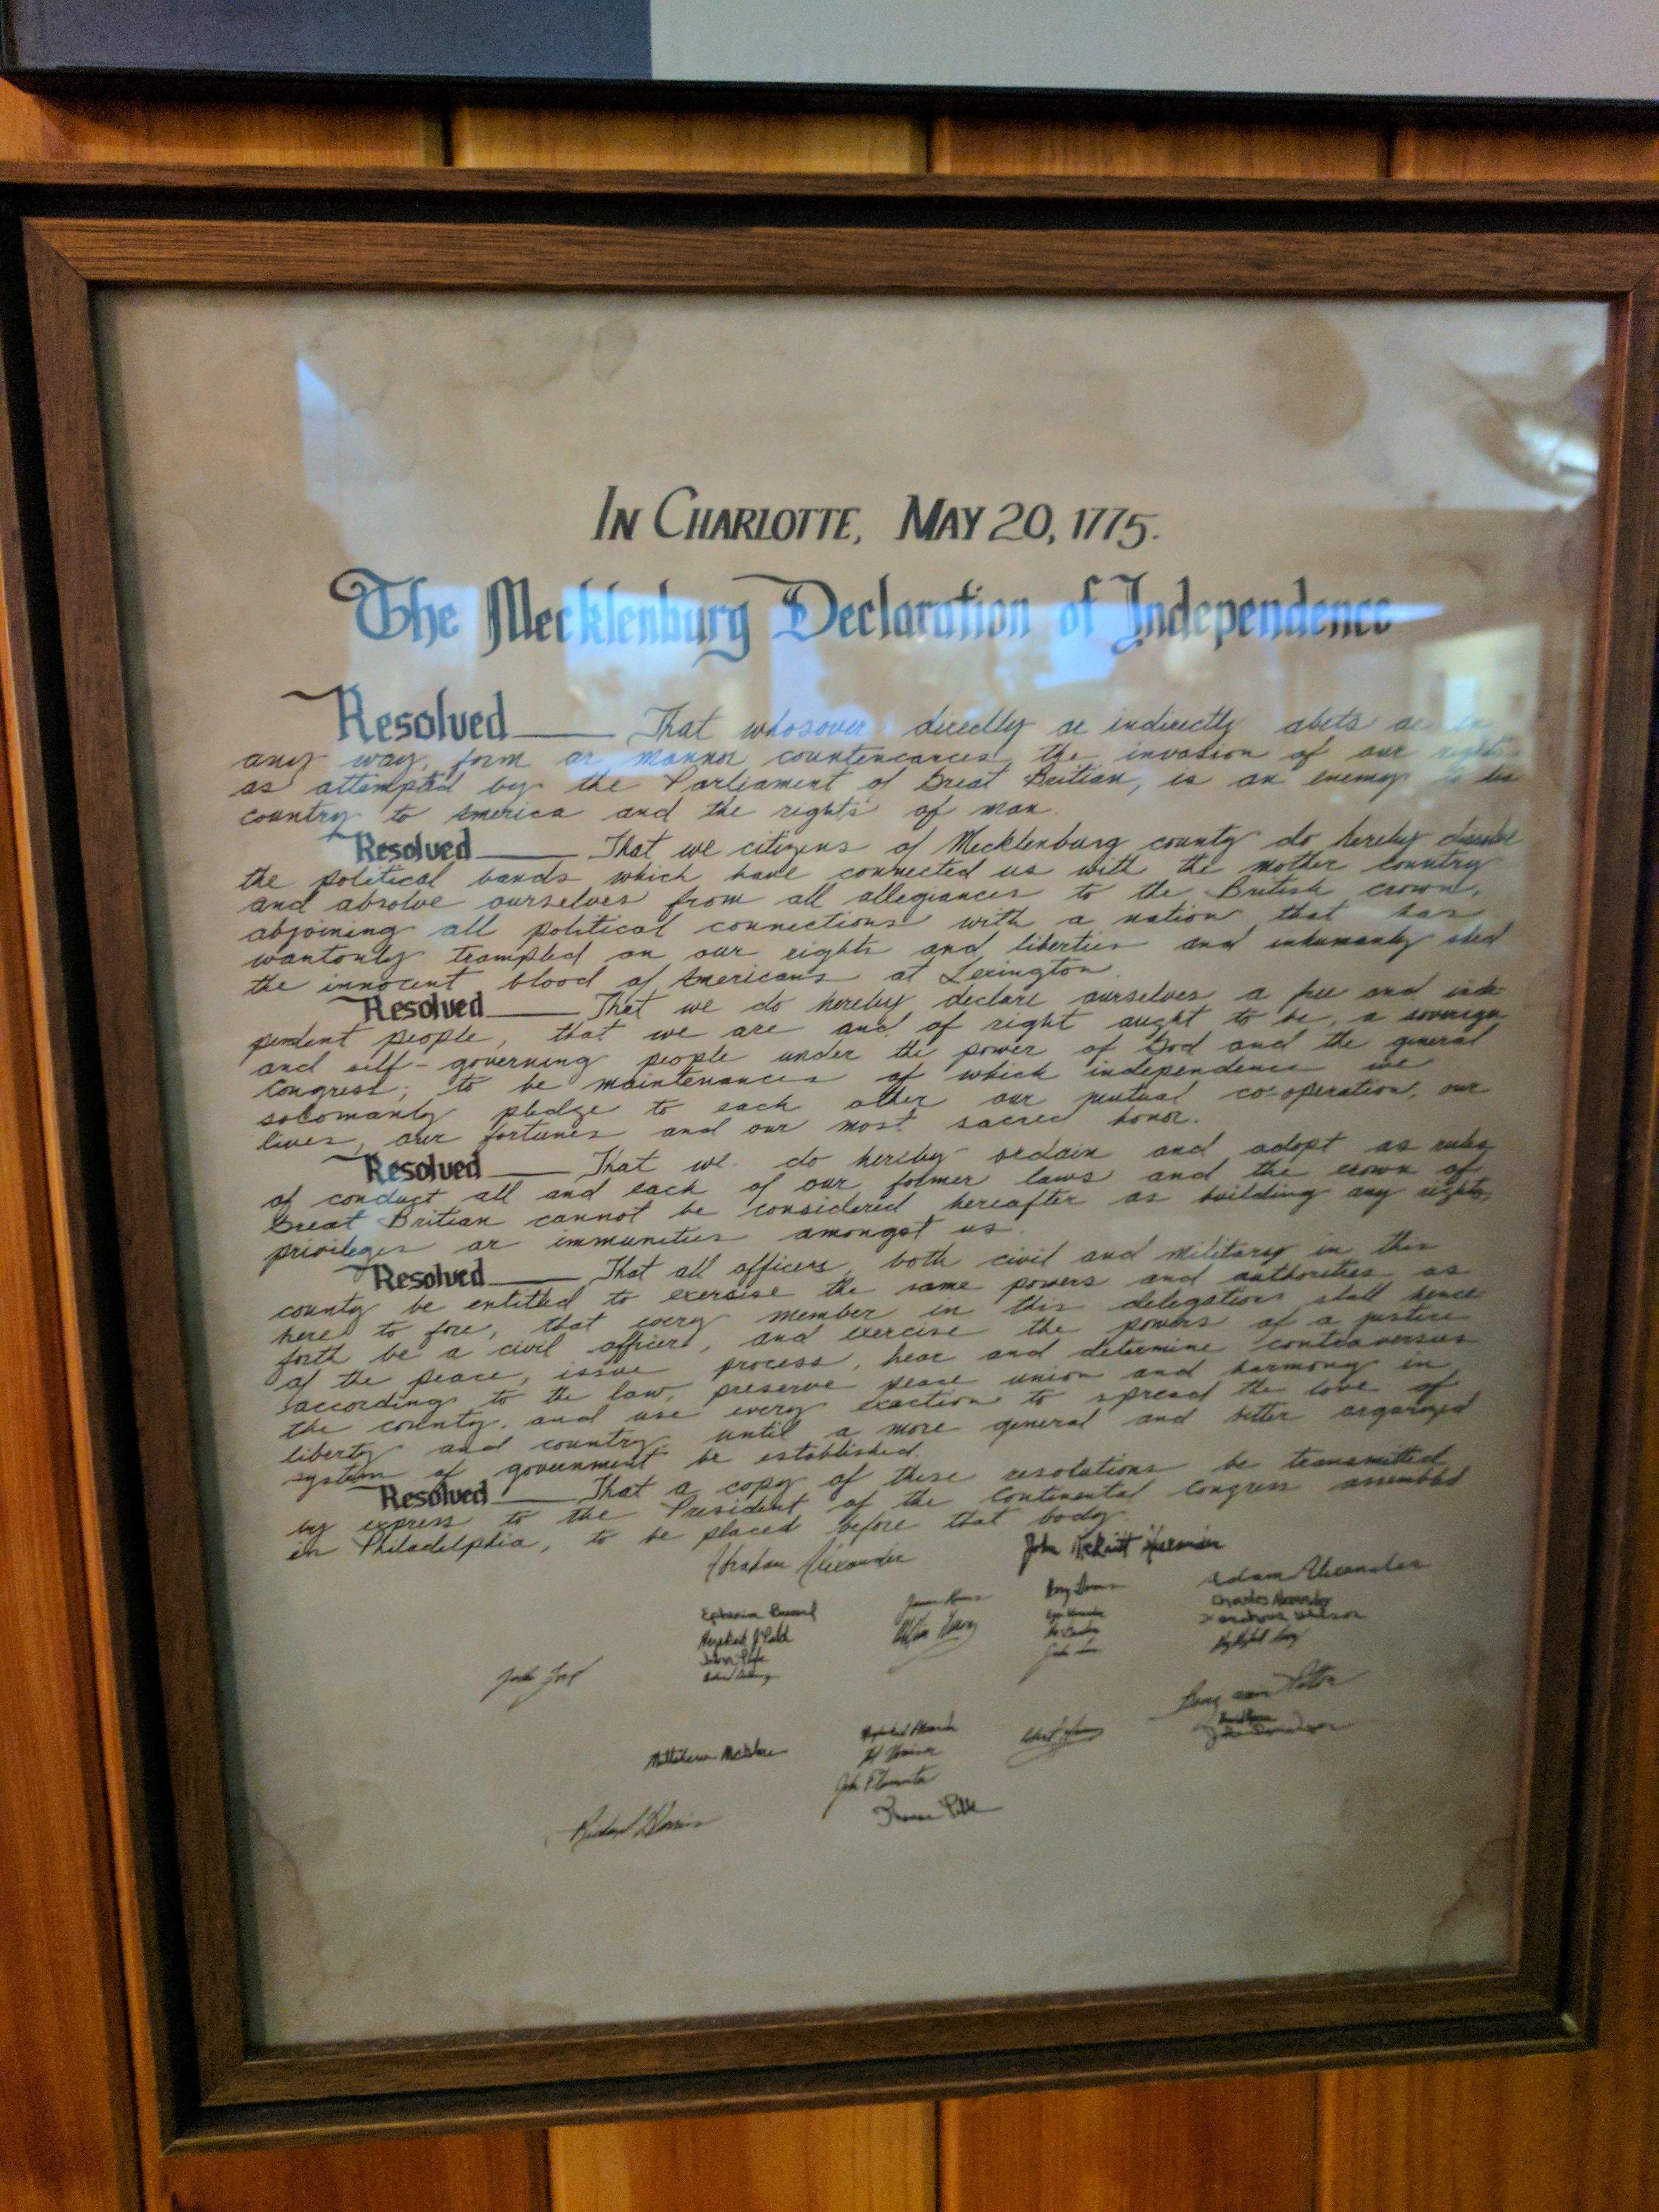 IN CHARLOTTE, MAY 20, 1775.
The Mecklenburg Declaration of Independence
Resolved — That whosover directly or indirectly abets or in
any way, form or mannor countenances the invasion of our rights
as attempted by the Parliament of Great Britian, is an enemy to his
country to America and the rights of man.
Resolved — That we citizens of Mecklenburg county do hereby
the political bands which have connected us with the mother country
and absolve ourselves from all allegiances to the British crown,
abjoining all political connections with a nation that has
wantonly trampled on our rights and liberties and inhumanly shed
the innocent blood of Americans at Lexington.
Resolved — That we do hereby declare ourselves a free and inde-
pendent people, that we are and of right aught to be, a soverign
and self-governing people under the power of God and the general
Congress; to be maintenances of which independence we
solomanly pledge to each other our mutual co-operation, our
lives, our fortunes and our most sacred honor.
Resolved — That we do hereby ordain and adopt as rules
of conduct all and each of our former laws and the crown of
Great Britian cannot be considered hereafter as building any rights,
privileges or immunities amongst us.
Resolved — That all officers, both civil and military in this
county be entitled to exercise the same powers and authorities as
here to fore, that every member in this delegation shall hence
forth be a civil officer, and exercise the powers of a justice
of the peace, issue process, hear and determine controversies
according to the law, preserve peace union and harmony in
the county, and use every exaction to spread the love of
liberty and country until a more general and better organized
system of government be established.
Resolved — That a copy of these resolutions be transmitted
by express to the President of the Continental Congress assembled
in Philadelphia, to be placed before that body.
Abraham Alexander
Adam Alexander
Charles Alexander
John Ford
Richard Harris
Thomas Polk